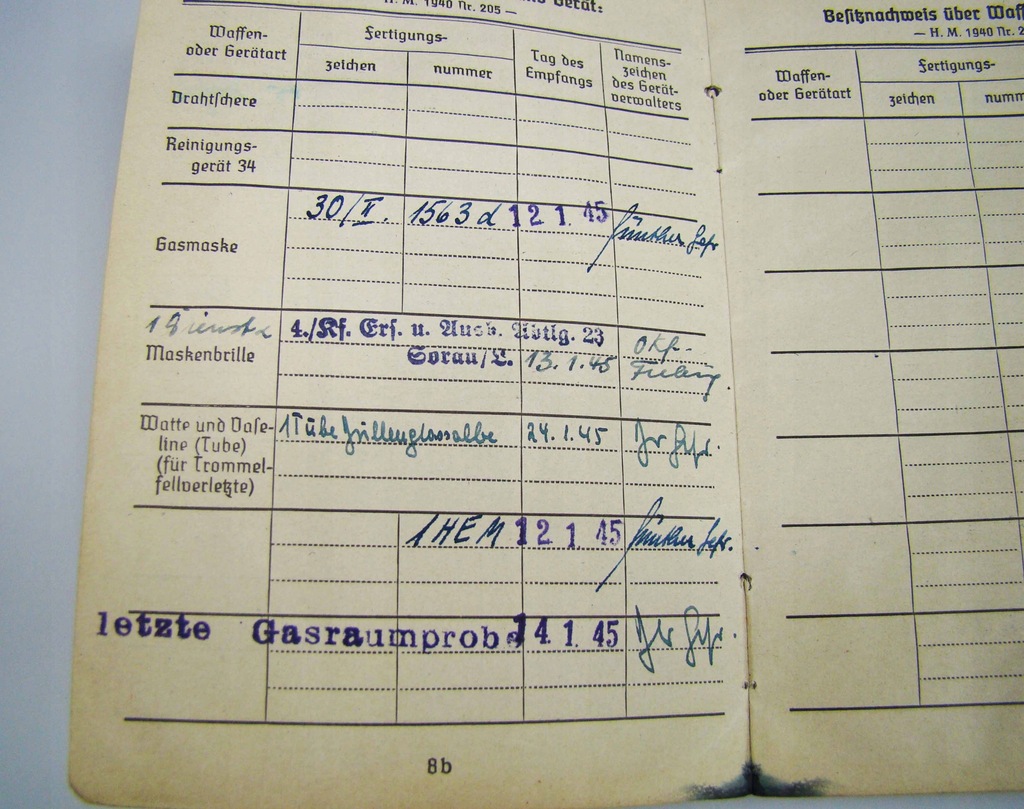 Gerät:
— H. M. 1940 Nr. 205 —
Waffen-
oder Gerätart
Fertigungs-
zeichen
nummer
Tag des
Empfangs
Namens-
zeichen
des Gerät-
verwalters
Drahtschere
Reinigungs-
gerät 34
Gasmaske
30/II. 1563 d 12 1. 45 Günther Gefr
1 Dienst
Maskenbrille
4./Kf. Ers. u. Ausb. Abtlg. 23
Sorau/L. 13.1.45
Watte und Vase-
line (Tube)
(für Trommel-
fellverletzte)
1 Tube 24.1.45 Gefr.
1 HEM 12 1. 45 Günther Gefr.
letzte Gasraumprobe 14. 1. 45 Gefr.
8b
Besitznachweis über Waf
— H. M. 1940 Nr. 2
Waffen-
oder Gerätart
Fertigungs-
zeichen
numm